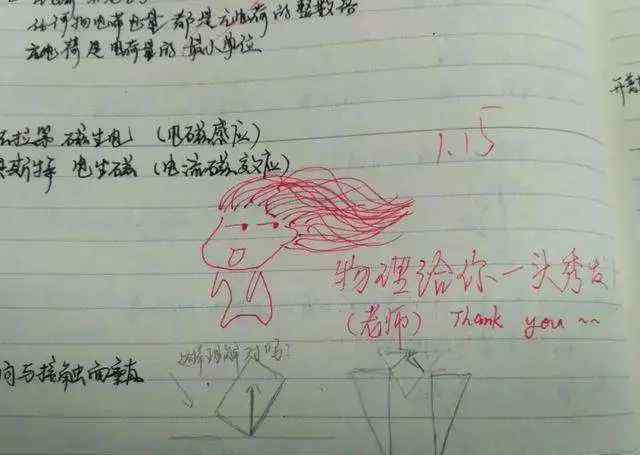 任何物电带电量都是元电荷的整数倍
元电荷是电荷量的最小单位
法拉第 磁生电 (电磁感应)
奥斯特 电生磁 (电流磁效应)
1.15
物理给你一头秀发
(老师) Thank you~~
这样理解对吗?
向与接触面垂直